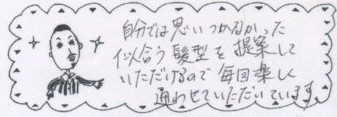 自分では思いつかなかった
似合う髪型を提案して
いただけるので毎回楽しく
通わせていただいています。